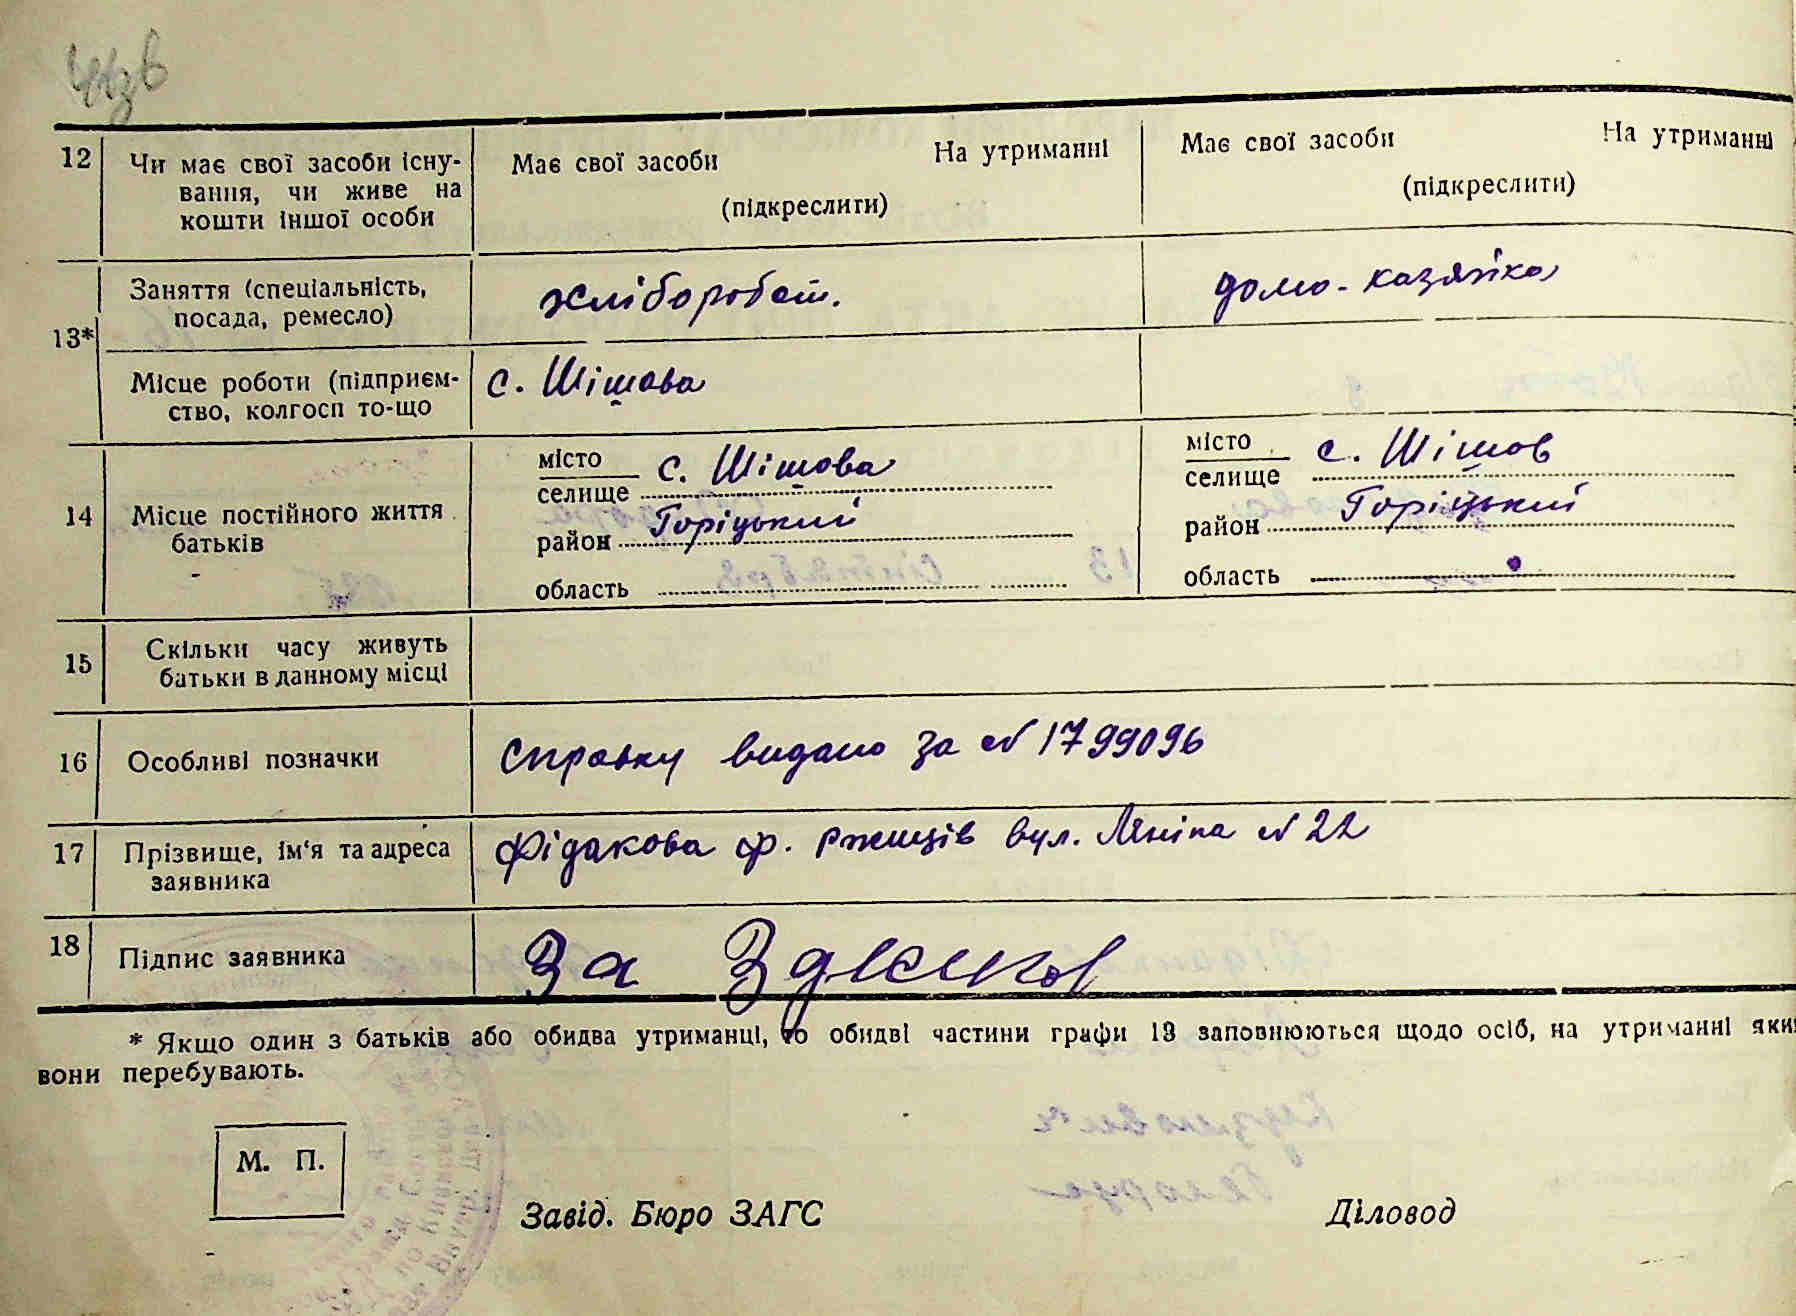 12 Чи має свої засоби існу- Має свої засоби На утриманні Має свої засоби На утриманні
вання, чи живе на (підкреслити) (підкреслити)
кошти іншої особи
13* Заняття (спеціальність, хлібороб домо-хазяйка
посада, ремесло)
Місце роботи (підприєм- с. Шішова
ство, колгосп то-що
14 Місце постійного життя батьків
місто с. Шішова місто с. Шішов
селище селище
район Горіцький район Горіцький
область область
15 Скільки часу живуть
батьки в данному місці
16 Особливі позначки Справку видано за № 1799096
17 Прізвище, ім'я та адреса Фідакова ф. Ржищів вул. Леніна № 22
заявника
18 Підпис заявника За
* Якщо один з батьків або обидва утриманці, то обидві частини графи 13 заповнюються щодо осіб, на утриманні яких
вони перебувають.
М. П.
Завід. Бюро ЗАГС Діловод